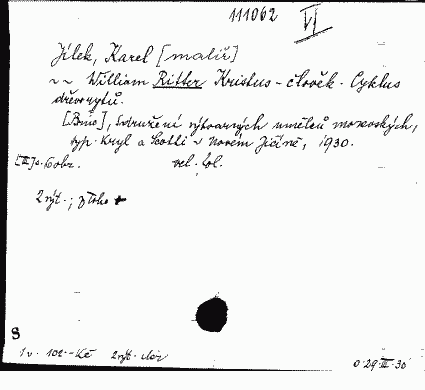 111062 VI
Jílek, Karel [malíř]
~ ~ William Ritter Kristus - člověk. Cyklus
dřevorytů.
[Brno], Sdružení výtvarných umělců moravských,
typ. Kryl a Scotti v Novém Jičíně, 1930.
[III] s. 6 obr. vel. fol.
2 výt.; z toho
8
1 v. 102.- Kč 2 výt. dar
0.29.III.30